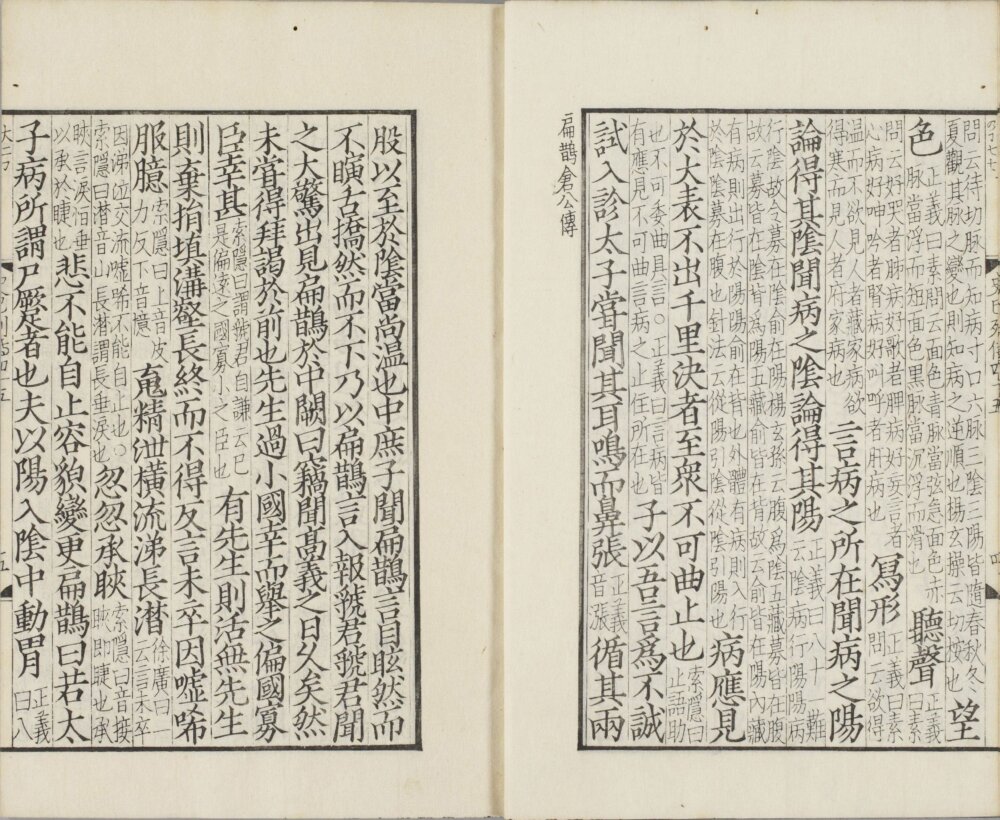 問云待切脉而知病寸口六脉三陰三陽皆隨春秋冬
夏觀其脉之變也則知病之逆順也楊玄操云切按也
望
色
正義曰素問云面色青脉當弦急面色赤
脉當浮而短面色黑脉當沉浮而滑也
聽聲
正義曰素
問云好哭者肺病好歌者脾病好妄言者
心病好呻吟者腎病好叫呼者肝病也
冩形
正義曰素
問云欲得
溫而不欲見人者藏家病欲
得寒而見人者府家病也
言病之所在聞病之陽
論得其陰聞病之陰論得其陽
正義曰八十難
云陰病行陽陽病
行陰故令募在陰俞在陽楊玄孫云腹爲陰五藏募皆在腹
故云募皆在陰背爲陽五藏俞皆在背故云俞皆在陽内藏
有病則出行於陽陽俞在背也外體有病則入行
於陰陰募在腹也針法云從陽引陰從陰引陽也
病應見
於大表不出千里決者至衆不可曲止也
索隱曰
止語助
也不可委曲具言○正義曰言病皆
有應見不可曲言病之止住所在也
子以吾言爲不誠
試入診太子當聞其耳鳴而鼻張
正義
音漲
循其兩
扁鵲倉公傳
股以至於陰當尚温也中庶子聞扁鵲言目眩然而
不瞚舌撟然而不下乃以扁鵲言入報虢君虢君聞
之大驚出見扁鵲於中闕曰竊聞高義之日久矣然
未甞得拜謁於前也先生過小國幸而舉之偏國寡
臣幸甚
索隱曰謂虢君自謙云已
是偏遠之國寡小之臣也
有先生則活無先生
則弃捐填溝壑長終而不得反言未卒因嘘唏
服臆
索隱曰上音皮
力反下音憶
䰟精泄橫流涕長潸
徐廣曰一
云言未卒
因涕泣交流嘘唏不能自止也○
索隱曰潸音山長潸謂長垂淚也
忽忽承䀹
索隱曰音接
䀹即睫也承
䀹言淚恒垂
以承於睫也
悲不能自止容貌變更扁鵲曰若太
子病所謂尸蹷者也夫以陽入陰中動胃
正義
曰八